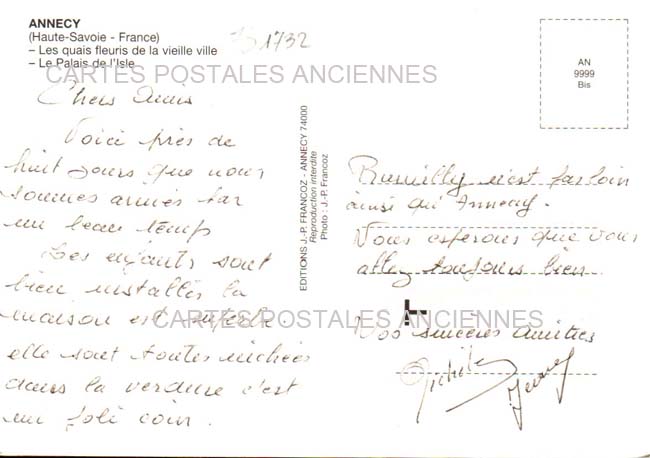 ANNECY
(Haute-Savoie - France)
– Les quais fleuris de la vieille ville
– Le Palais de l'Isle
1732
CARTES POSTALES ANCIENNES
AN
9999
Bis
Chers Amis
Voici près de
huit jours que nous
sommes arrivés par
un beau temps
Les enfants sont
bien installés la
maison est superbe
elle sont toutes nichées
dans la verdure c'est
un joli coin.
EDITIONS J.-P. FRANCOZ - ANNECY 74000
Reproduction interdite
Photo : J.-P. Francoz
Rumilly n'est pas loin
ainsi qu'Annecy.
Nous esperons que vous
allez toujours bien
CARTES POSTALES ANCIENNES
Nos sincères amitiés